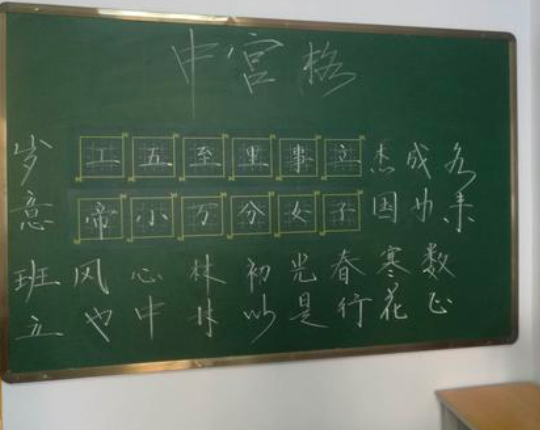 中宫格
岁工五至里事立杰成名
意帝小万分女子因为来
班风心林初光春寒数
立也中林以是行花正